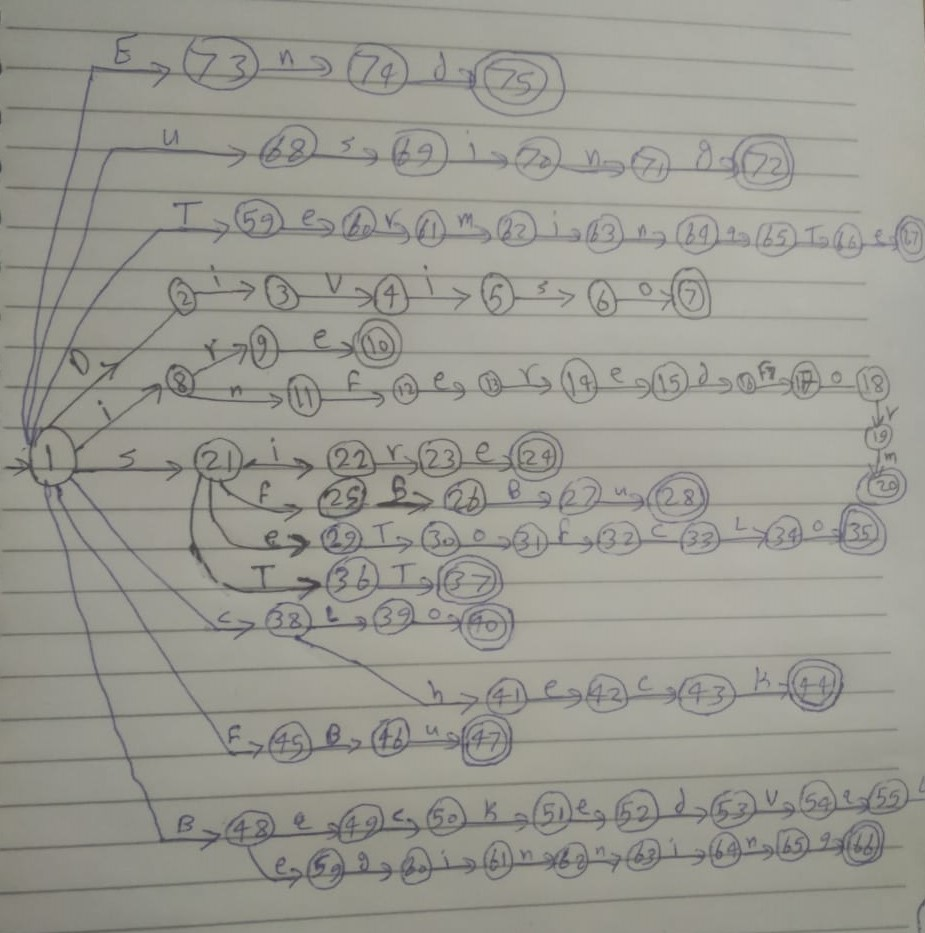 E 73 n 74 d 75
u 68 s 69 i 70 n 71 g 72
T 59 e 60 r 61 m 62 i 63 n 64 a 65 T 66 e 67
2 i 3 V 4 i 5 s 6 o 7
D r 9 e 10
i 8 n 11 F 12 e 13 r 14 e 15 d 16 17 o 18
r
19
1 s 21 i 22 r 23 e 24 m
20
F 25 B 26 B 27 u 28
e 29 T 30 o 31 F 32 C 33 L 34 o 35
T 36 T 37
C 38 L 39 o 40
h 41 e 42 c 43 k 44
F 45 B 46 u 47
B 48 a 49 c 50 K 51 e 52 d 53 V 54 a 55
e 59 g 60 i 61 n 62 n 63 i 64 n 65 g 66